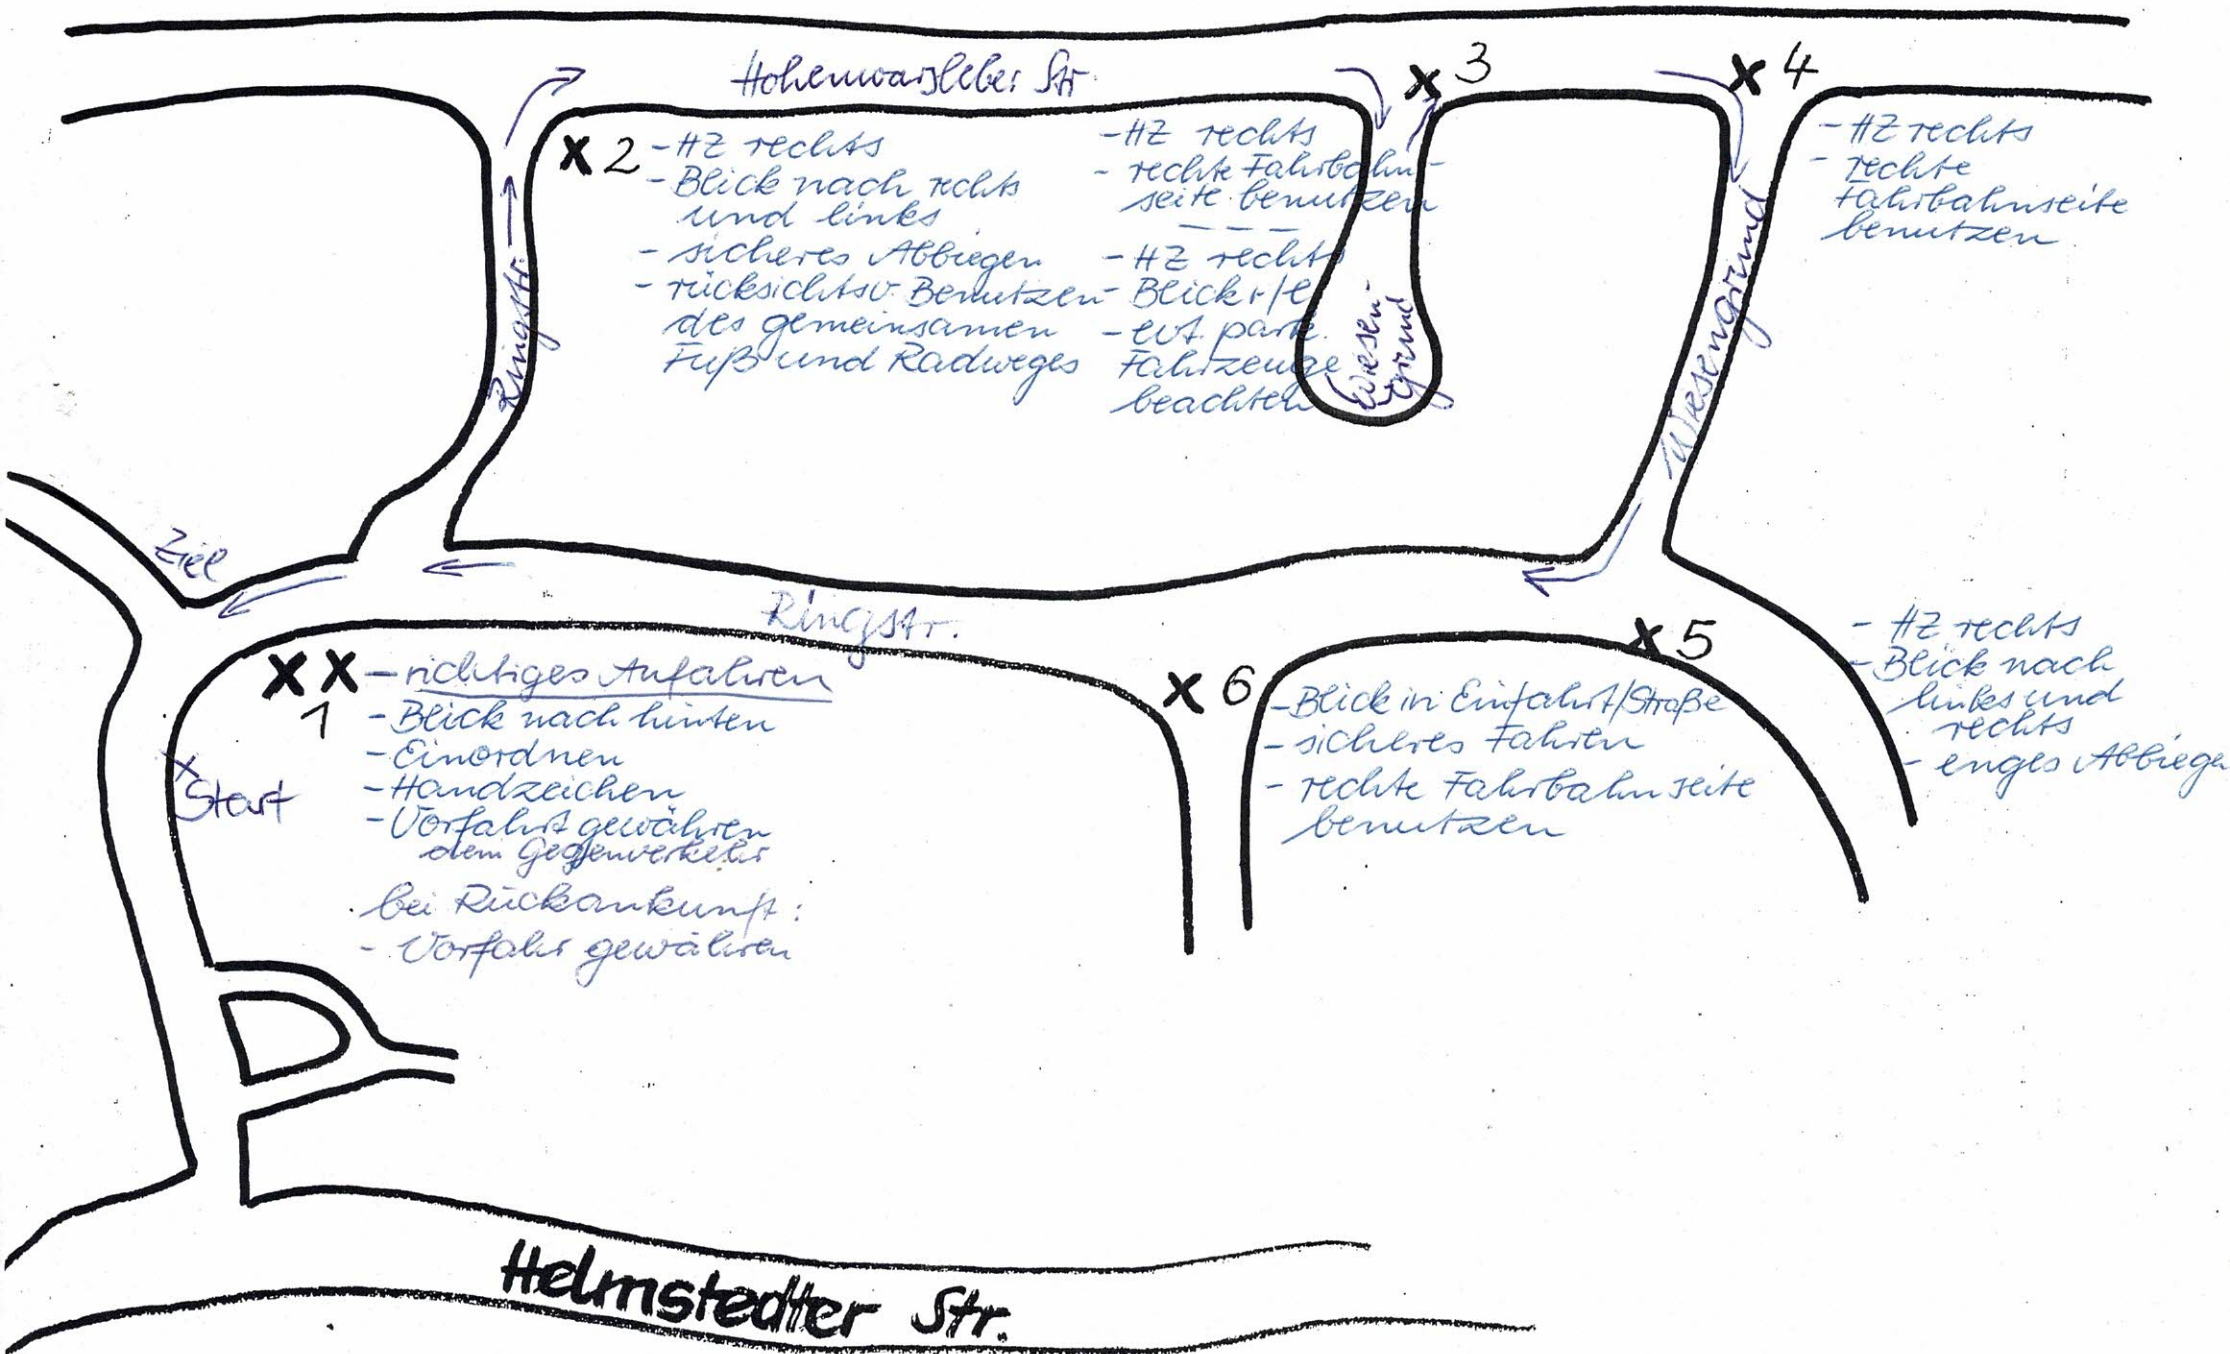 Hohenwarsleber Str.
3
4
X 2
- HZ rechts
- Blick nach rechts
und links
- sicheres Abbiegen
- rücksichtsv. Benutzen
des gemeinsamen
Fuß und Radweges
- HZ rechts
- rechte Fahrbahn-
seite benutzen
- HZ rechts
- Blick r/l
- evt. park.
Fahrzeuge
beachten
Wiesen-
grund
- HZ rechts
- rechte
Fahrbahnseite
benutzen
Ringstr.
Wiesengrund
Ziel
Ringstr.
X X
1
- richtiges Anfahren
- Blick nach hinten
- Einordnen
- Handzeichen
- Vorfahrt gewähren
dem Gegenverkehr
bei Rückankunft:
- Vorfahr gewähren
x
Start
X 6
- Blick in Einfahrt/Straße
- sicheres Fahren
- rechte Fahrbahnseite
benutzen
X 5
- HZ rechts
- Blick nach
links und
rechts
- enges Abbiege
Helmstedter Str.